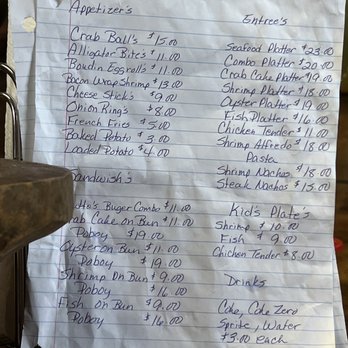 Appetizer's
Crab Ball's $15.00
Alligator Bite's $11.00
Boudin Eggroll's $11.00
Bacon Wrap Shrimp $13.00
Cheese Stick's $9.00
Onion Ring's $8.00
French Fries $5.00
Baked Potato $3.00
Loaded Potato $4.00
Sandwish's
Buger Combo $11.00
Crab Cake on Bun $11.00
Poboy $19.00
Oyster on Bun $11.00
Poboy $19.00
Shrimp On Bun $9.00
Poboy $16.00
Fish On Bun $9.00
Poboy $16.00
Entree's
Seafood Platter $23.00
Combo Platter $20.00
Crab Cake Platter $19.00
Shrimp Platter $18.00
Oyster Platter $19.00
Fish Platter $16.00
Chicken Tender $11.00
Shrimp Alfredo $18.00
Pasta
Shrimp Nachos $18.00
Steak Nachos $15.00
Kid's Plate's
Shrimp $10.00
Fish $9.00
Chicken Tender $8.00
Drinks
Coke, Coke Zero
Sprite, Water
$3.00 each